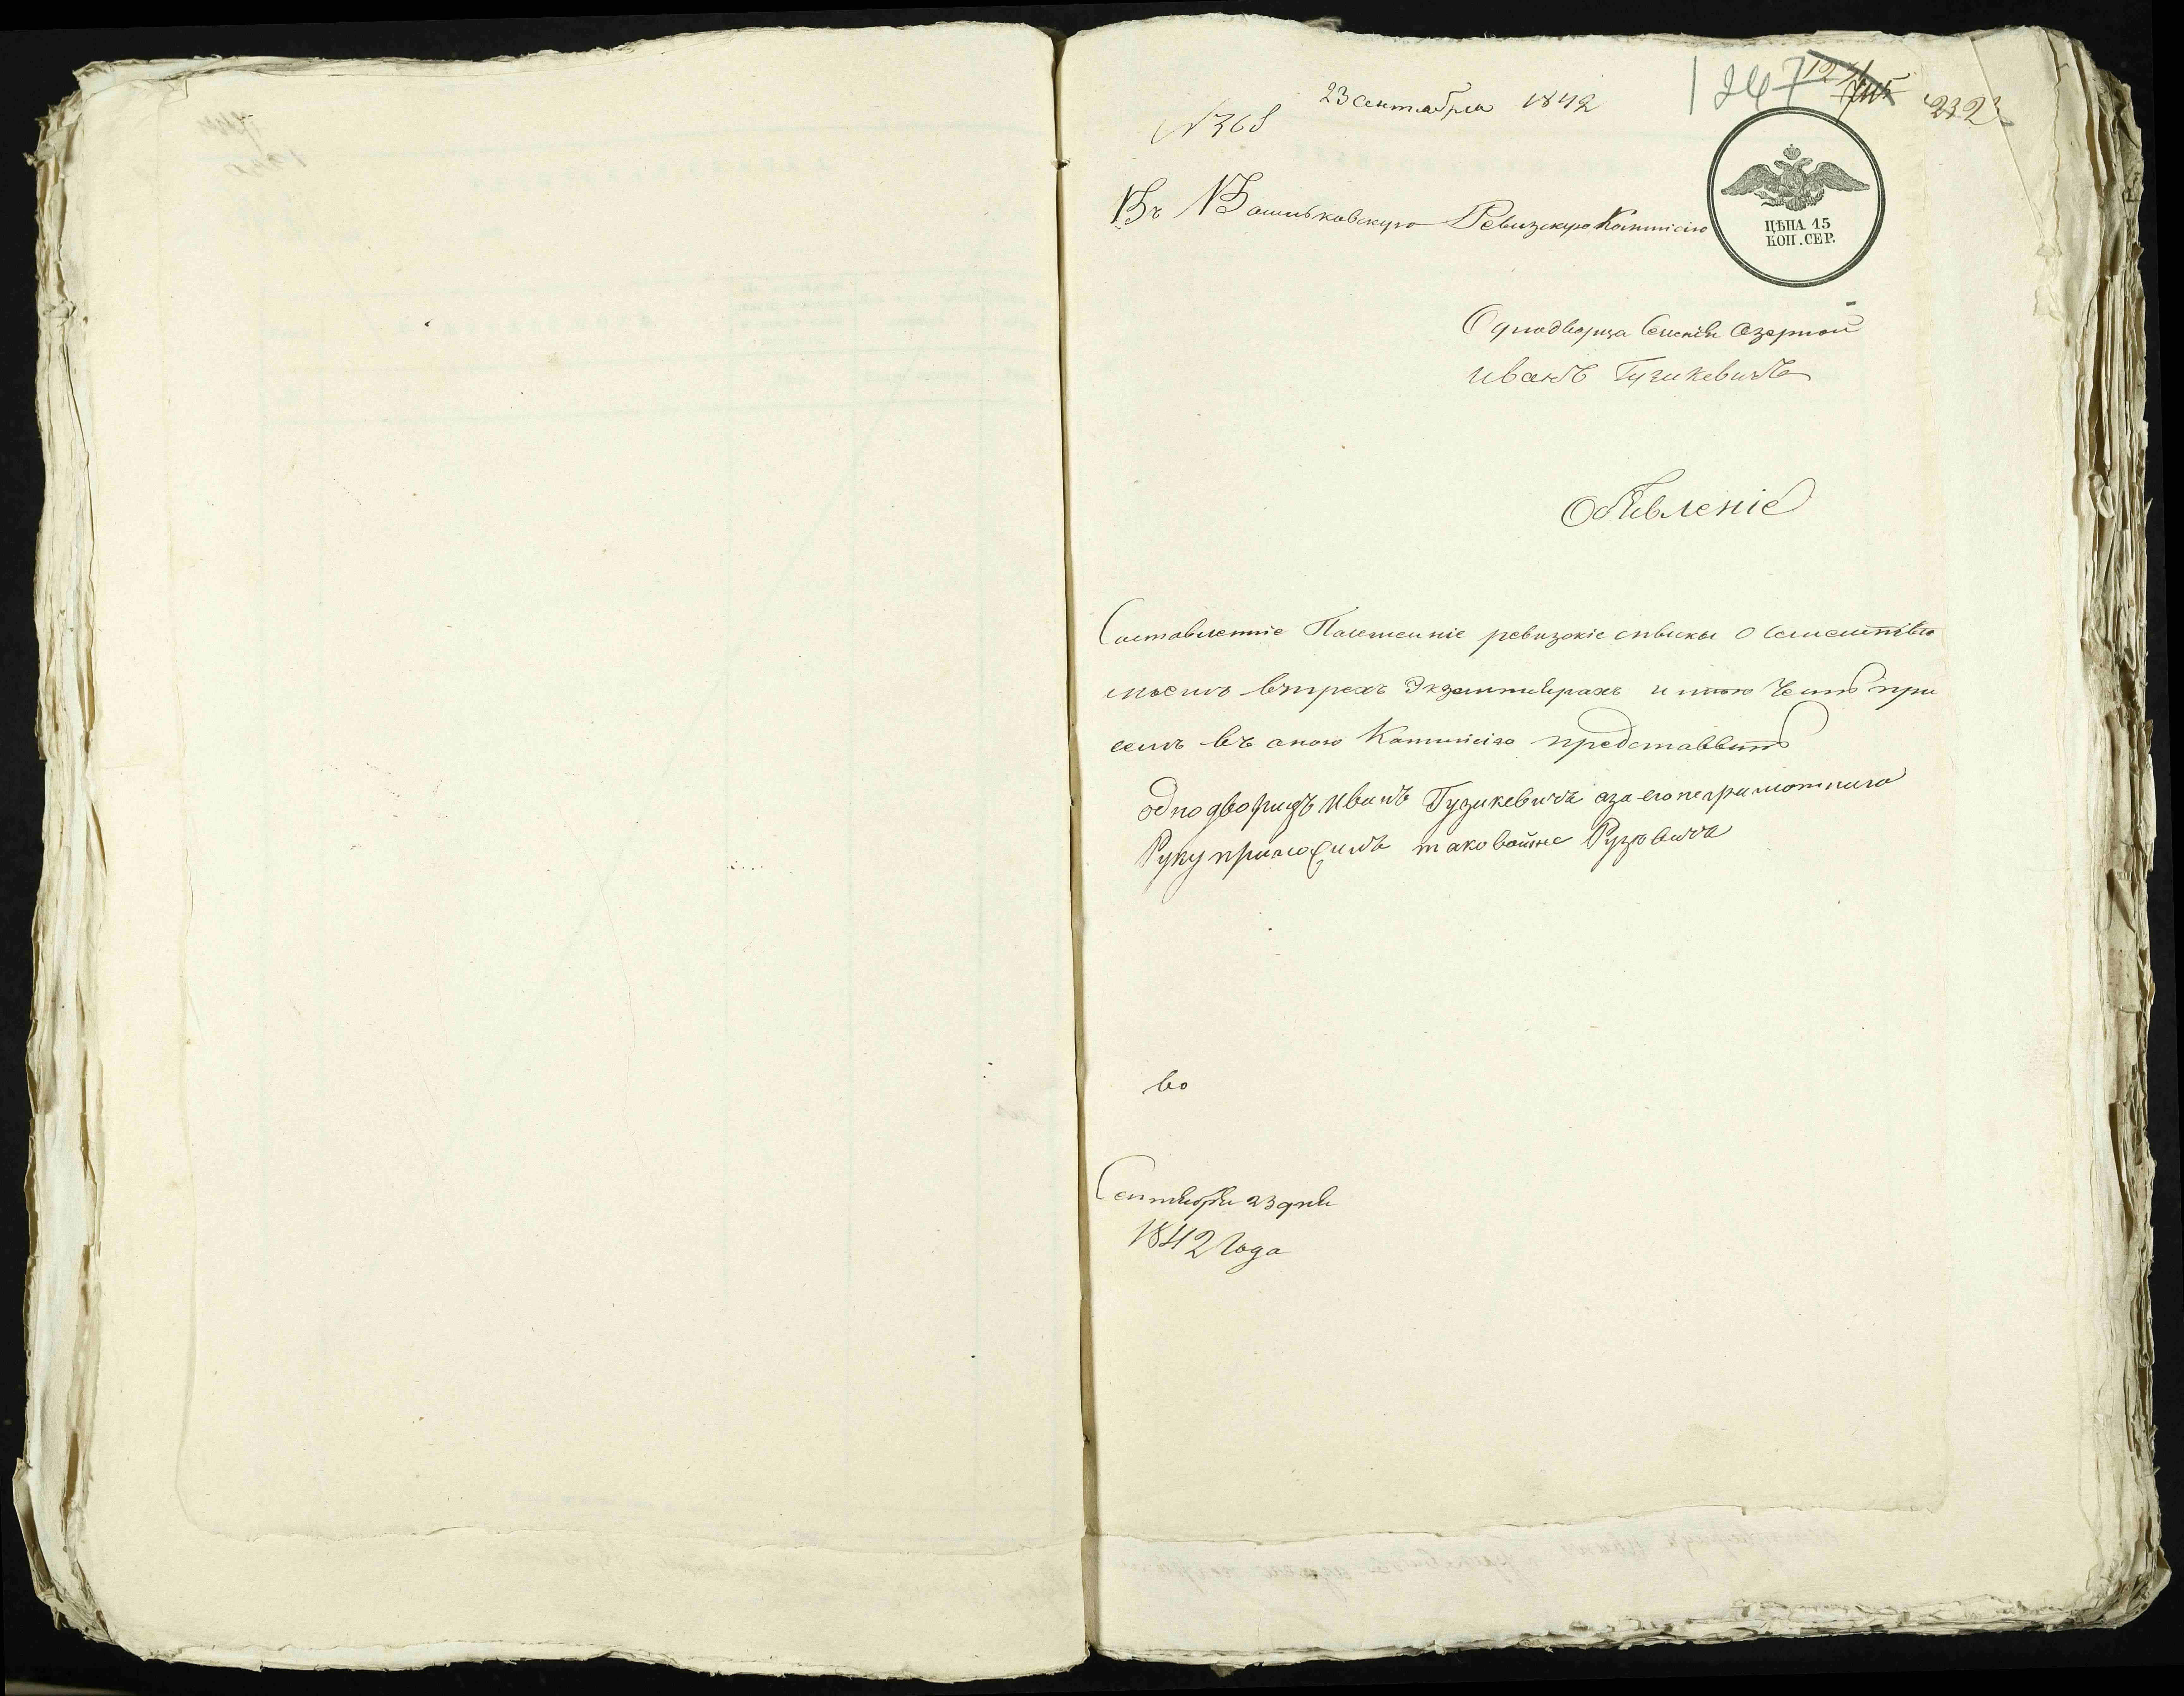 23 Сентабра 1842
1247 1241 2323
№ 368
Въ Васильковскую Ревизскую Коммисію
ЦѢНА 15
КОП. СЕР.
Однодворца Селенія Озерной
Иванъ Гузикевичъ
Обявленіе
Составленніе Посемейніе ревизскіе списки о Семействѣ
моемъ втрехъ Экземплярахъ и мною Честь при
семъ въ оною Коммисію представить
однодворицъ Иванъ Гузикевичъ аза его неграмотнаго
Руку приложилъ таковойже
во
Сентября 23 дня
1842 Года